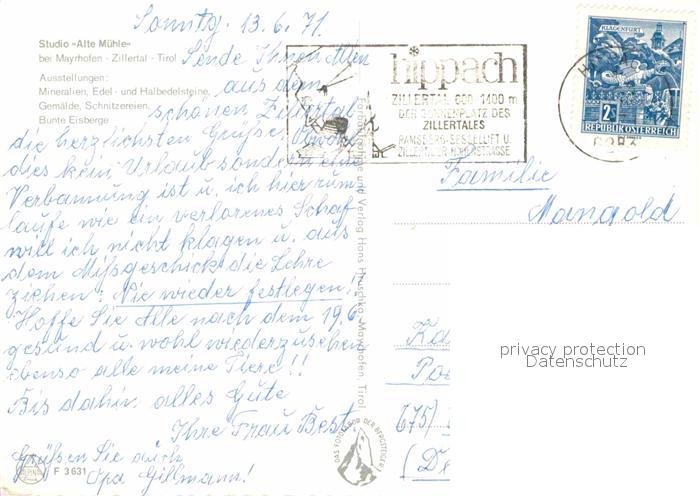 Sonntg. 13.6.71
Studio »Alte Mühle«
bei Mayrhofen - Zillertal - Tirol
Ausstellungen:
Mineralien, Edel- und Halbedelsteine,
Gemälde, Schnitzereien,
Bunte Eisberge
Sende Ihnen Allen
aus dem
schönen Zillertal
die herzlichsten Grüße. Obwohl
dies kein Urlaub sondern eine
Verbannung ist u. ich hier rum
laufe wie ein verlorenes Schaf
will ich nicht klagen u. aus
dem Mißgeschick die Lehre
ziehen: Nie wieder festlegen!!
Hoffe Sie Alle nach dem 19.6.
gesund u. wohl wiederzusehen
ebenso alle meine Tiere!!
Bis dahin alles Gute
Ihre Frau Best.
Grüßen Sie auch
Opa Gillmann!
F 3631
und Verlag Hans Hruschka, Mayrhofen, Tirol
DAS FOTO VON DER BERGSTEIGER
hippach
ZILLERTAL 600-1400 m
DER SONNENPLATZ DES
ZILLERTALES
RAMSBERG-SESSELLIFT U.
ZILLERTALER HÖHENSTRASSE
KLAGENFURT
2S
REPUBLIK ÖSTERREICH
6283
Familie
Mangold
Ka
Pos
675)
(De
privacy protection
Datenschutz